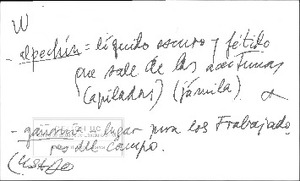 W
- alpechín = líquido oscuro y fétido
que sale de las aceitunas
(apiladas) (jámila).
- gañanía = lugar para los trabajado
res del campo.